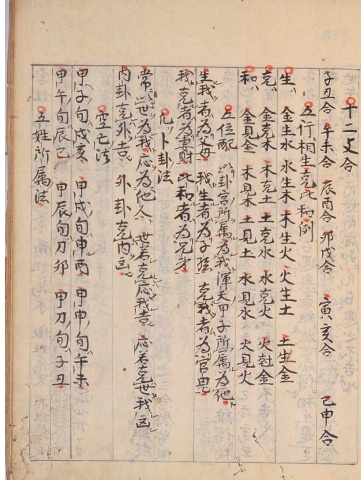 十二支合
子丑合 午未合 辰酉合 卯戌合 寅亥合 巳申合
五行相生克比和例
生 金生水 水生木 木生火 火生土 土生金
克 金克木 木克土 土克水 水克火 火克金
和 金見金 木見木 土見土 水見水 火見火
五位配 以卦宮所属為我渾天甲子所属為他
生我者為父母 我生者為子孫 克我者為官鬼
我克者為妻財 比和者為兄弟
凡卜卦法
常以世為我応為他人 世若克応我吉 応若克世我凶
内卦克外吉 外卦克内凶
空亡法
甲子旬戌亥 甲戌旬申酉 甲申旬午未
甲午旬辰巳 甲辰旬刁卯 甲刁旬子丑
五姓所属法